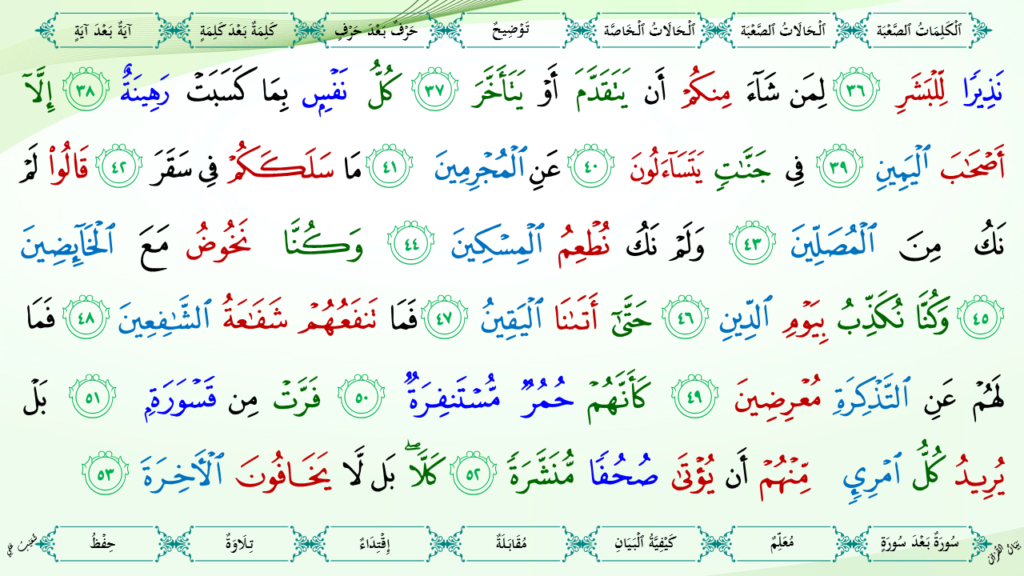 اَلْكَلِمَاتُ الصَّعْبَة اَلْحَالَاتُ الصَّعْبَة اَلْحَالَاتُ الْخَاصَّة تَوْضِيحٌ حَرْفٌ بَعْدَ حَرْفٍ كَلِمَةٌ بَعْدَ كَلِمَةٍ آيَةٌ بَعْدَ آيَةٍ
نَذِيرٗا لِّلۡبَشَرِ ٣٦ لِمَن شَآءَ مِنكُمۡ أَن يَتَقَدَّمَ أَوۡ يَتَأَخَّرَ ٣٧ كُلُّ نَفۡسِۭ بِمَا كَسَبَتۡ رَهِينَةٌ ٣٨ إِلَّآ
أَصۡحَٰبَ ٱلۡيَمِينِ ٣٩ فِي جَنَّٰتٖ يَتَسَآءَلُونَ ٤٠ عَنِ ٱلۡمُجۡرِمِينَ ٤١ مَا سَلَكَكُمۡ فِي سَقَرَ ٤٢ قَالُواْ لَمۡ
نَكُ مِنَ ٱلۡمُصَلِّينَ ٤٣ وَلَمۡ نَكُ نُطۡعِمُ ٱلۡمِسۡكِينَ ٤٤ وَكُنَّا نَخُوضُ مَعَ ٱلۡخَآئِضِينَ
٤٥ وَكُنَّا نُكَذِّبُ بِيَوۡمِ ٱلدِّينِ ٤٦ حَتَّىٰٓ أَتَىٰنَا ٱلۡيَقِينُ ٤٧ فَمَا تَنفَعُهُمۡ شَفَٰعَةُ ٱلشَّٰفِعِينَ ٤٨ فَمَا
لَهُمۡ عَنِ ٱلتَّذۡكِرَةِ مُعۡرِضِينَ ٤٩ كَأَنَّهُمۡ حُمُرٞ مُّسۡتَنفِرَةٞ ٥٠ فَرَّتۡ مِن قَسۡوَرَةِۭ ٥١ بَلۡ
يُرِيدُ كُلُّ ٱمۡرِيٕٖ مِّنۡهُمۡ أَن يُؤۡتَىٰ صُحُفٗا مُّنَشَّرَةٗ ٥٢ كَلَّاۖ بَل لَّا يَخَافُونَ ٱلۡأٓخِرَةَ ٥٣
سُورَةٌ بَعْدَ سُورَةٍ مُعَلِّمٌ كَيْفِيَّةُ الْبَيَانِ مُقَابَلَةٌ إِقْتِدَاءٌ تِلَاوَةٌ حِفْظٌ